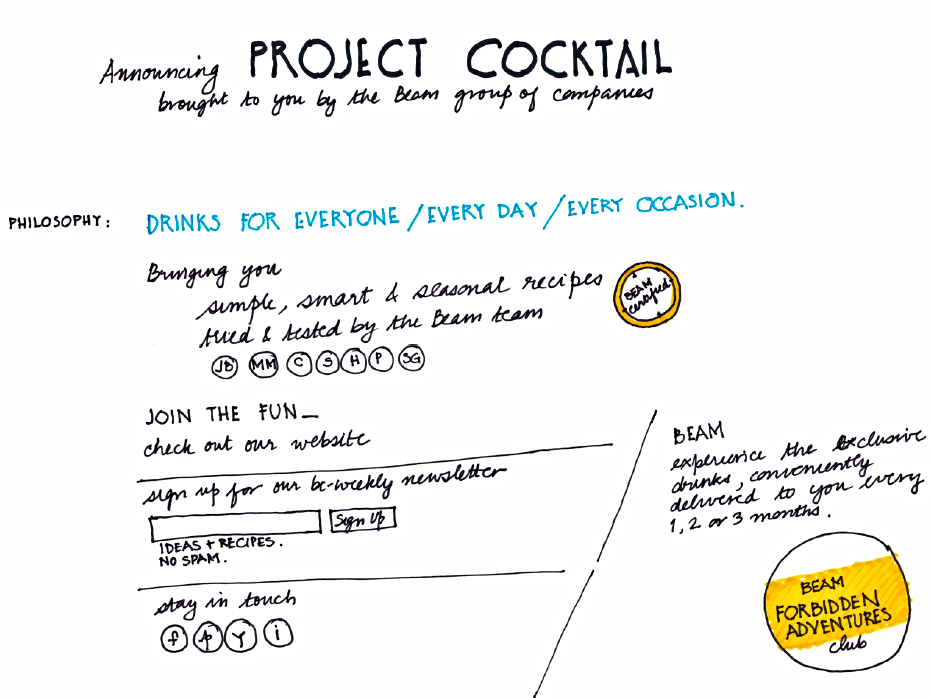 Announcing PROJECT COCKTAIL
brought to you by the Beam group of companies
PHILOSOPHY: DRINKS FOR EVERYONE / EVERY DAY / EVERY OCCASION.
Bringing you
simple, smart & seasonal recipes
tried & tested by the Beam team
BEAM
certified
JB MM C S H P SG
JOIN THE FUN_
check out our website
sign up for our bi-weekly newsletter
Sign Up
IDEAS + RECIPES.
NO SPAM.
stay in touch
f p y i
BEAM
experience the exclusive
drinks, conveniently
delivered to you every
1, 2 or 3 months.
BEAM
FORBIDDEN
ADVENTURES
club